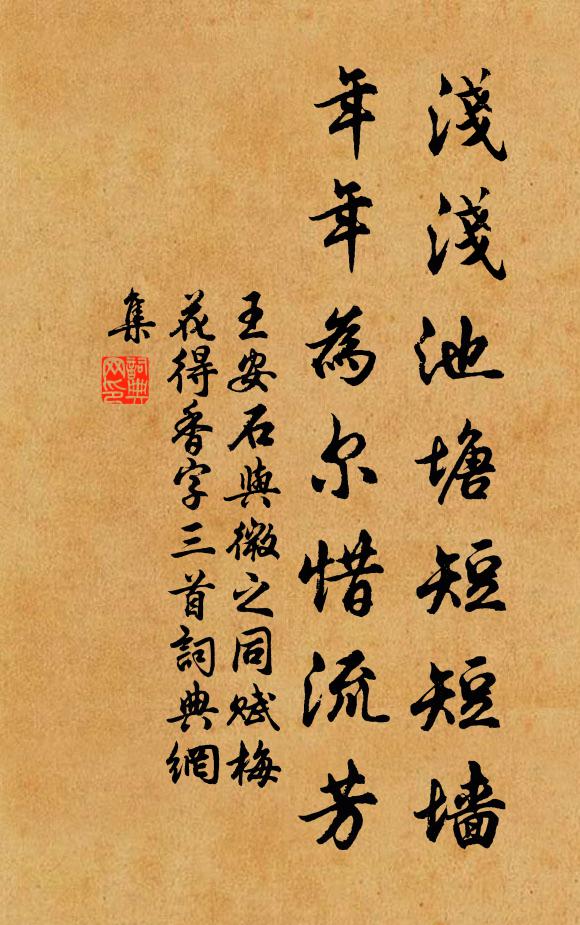 淺淺池塘短短墙
年年為尔惜流芳
王安石與微之同赋梅
花得香字三首詞典網
集
詞典
网印